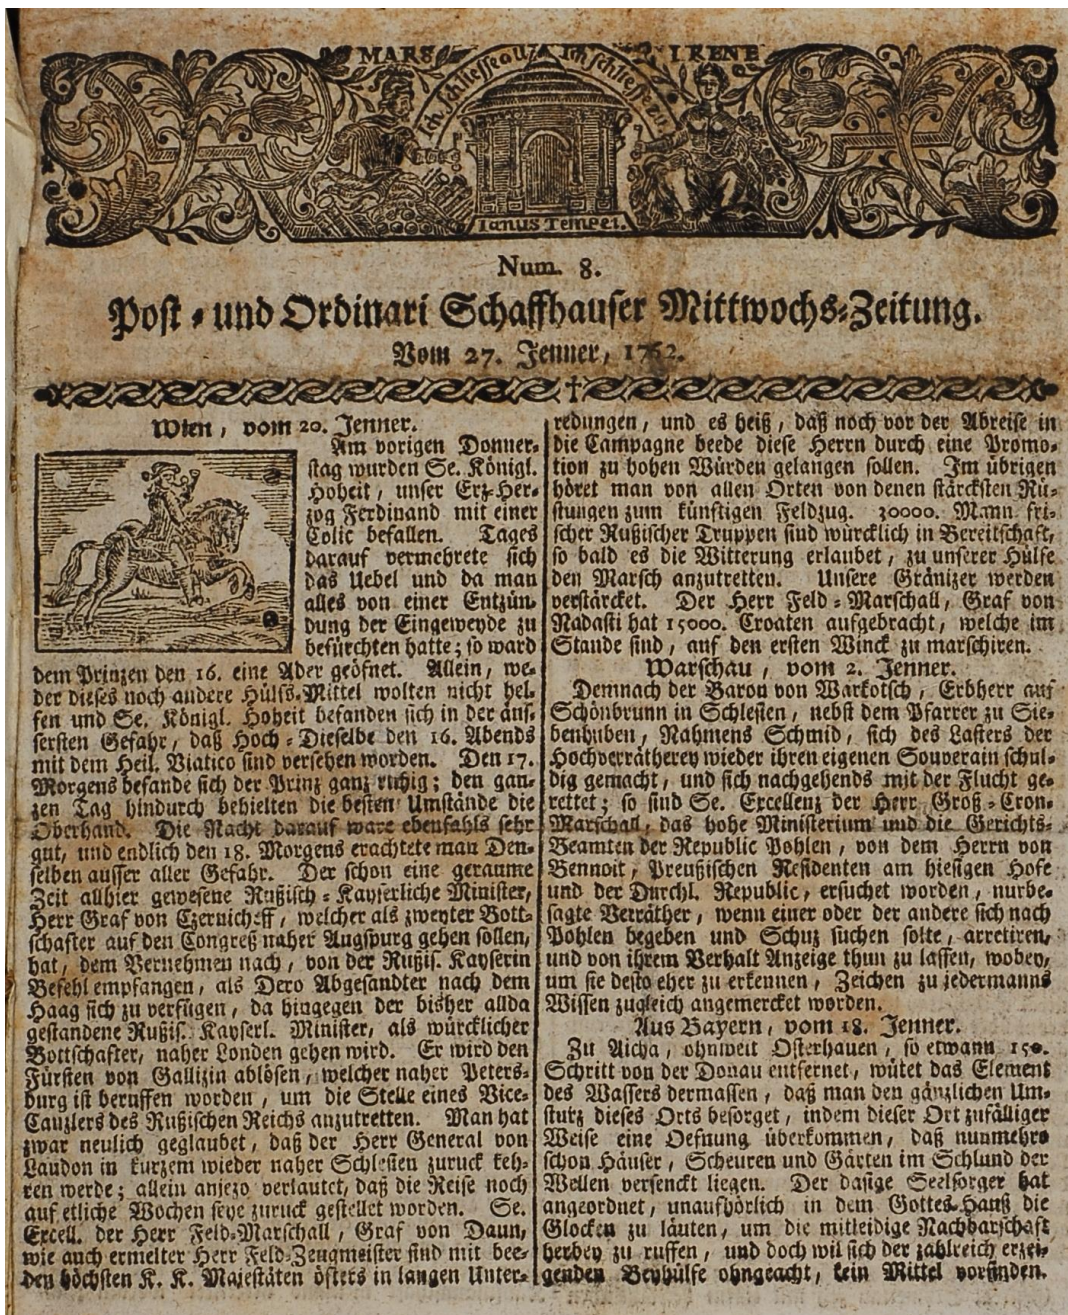 MARS
IRENE
Ich schliesse auf
Ich schliesse zu.
Ianus Tempel.
Num. 8.
Post- und Ordinari Schaffhauser Mittwochs-Zeitung.
Vom 27. Jenner, 1762.
Wien, vom 20. Jenner.
Am vorigen Donner-
stag wurden Se. Königl.
Hoheit, unser Ertz-Her-
zog Ferdinand mit einer
Colic befallen. Tages
darauf vermehrete sich
das Uebel und da man
alles von einer Entzün-
dung der Eingeweyde zu
befürchten hatte; so ward
dem Prinzen den 16. eine Ader geöfnet. Allein, we-
der dieses noch andere Hülfs-Mittel wolten nicht hel-
fen und Se. Königl. Hoheit befanden sich in der äus-
sersten Gefahr, daß Hoch-Dieselbe den 16. Abends
mit dem Heil. Viatico sind versehen worden. Den 17.
Morgens befande sich der Prinz ganz ruhig; den gan-
zen Tag hindurch behielten die besten Umstände die
Oberhand. Die Nacht darauf ware ebenfahls sehr
gut, und endlich den 18. Morgens erachtete man Den-
selben ausser aller Gefahr. Der schon eine geraume
Zeit allhier gewesene Rußisch-Kayserliche Minister,
Herr Graf von Czernicheff, welcher als zweyter Bott-
schafter auf den Congreß naher Augspurg gehen sollen,
hat, dem Vernehmen nach, von der Rußis. Kayserin
Befehl empfangen, als Dero Abgesandter nach dem
Haag sich zu verfügen, da hingegen der bisher allda
gestandene Rußis. Kayserl. Minister, als würcklicher
Bottschafter, naher Londen gehen wird. Er wird den
Fürsten von Gallizin ablösen, welcher naher Peters-
burg ist beruffen worden, um die Stelle eines Vice-
Canzlers des Rußischen Reichs anzutretten. Man hat
zwar neulich geglaubet, daß der Herr General von
Laudon in kurzem wieder naher Schlesien zuruck keh-
ren werde; allein anjezo verlautet, daß die Reise noch
auf etliche Wochen seye zuruck gestellet worden. Se.
Excell. der Herr Feld-Marschall, Graf von Daun,
wie auch ermelter Herr Feld-Zeugmeister sind mit bee-
den höchsten K. K. Majestäten öfters in langen Unter-
redungen, und es heiß, daß noch vor der Abreise in
die Campagne beede diese Herrn durch eine Promo-
tion zu hohen Würden gelangen sollen. Im übrigen
höret man von allen Orten von denen stärcksten Rü-
stungen zum künftigen Feldzug. 30000. Mann fri-
scher Rußischer Truppen sind würcklich in Bereitschaft,
so bald es die Witterung erlaubet, zu unserer Hülfe
den Marsch anzutretten. Unsere Gränizer werden
verstärcket. Der Herr Feld-Marschall, Graf von
Nadasti hat 15000. Croaten aufgebracht, welche im
Stande sind, auf den ersten Winck zu marschiren.
Warschau, vom 2. Jenner.
Demnach der Baron von Warkotsch, Erbherr auf
Schönbrunn in Schlesien, nebst dem Pfarrer zu Sie-
benhuben, Nahmens Schmid, sich des Lasters der
Hochverrätherey wieder ihren eigenen Souverain schul-
dig gemacht, und sich nachgehends mit der Flucht ge-
rettet; so sind Se. Excellenz der Herr Groß-Cron-
Marschall, das hohe Ministerium und die Gerichts-
Beamten der Republic Pohlen, von dem Herrn von
Bennoit, Preußischen Residenten am hiesigen Hofe
und der Durchl. Republic, ersuchet worden, nurbe-
sagte Verräther, wenn einer oder der andere sich nach
Pohlen begeben und Schuz suchen solte, arretiren,
und von ihrem Verhalt Anzeige thun zu lassen, wobey,
um sie desto eher zu erkennen, Zeichen zu jedermanns
Wissen zugleich angemercket worden.
Aus Bayern, vom 18. Jenner.
Zu Aicha, ohnweit Osterhauen, so etwann 150.
Schritt von der Donau entfernet, wütet das Element
des Wassers dermassen, daß man den gänzlichen Um-
sturz dieses Orts besorget, indem dieser Ort zufälliger
Weise eine Oefnung überkommen, daß nunmehro
schon Häuser, Scheuren und Gärten im Schlund der
Wellen versenckt liegen. Der dasige Seelsorger hat
angeordnet, unaufhörlich in dem Gottes-Hauß die
Glocken zu läuten, um die mitleidige Nachbarschaft
herbey zu ruffen, und doch wil sich der zahlreich erzei-
genden Beyhülfe ohngeacht, kein Mittel vorfinden.